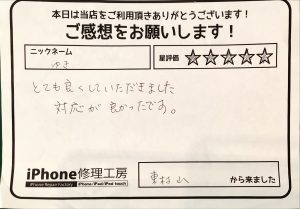 本日は当店をご利用頂きありがとうございます!
ご感想をお願いします!
ニックネーム
ゆき
星評価 ☆☆☆☆☆
とても良くしていただきました
対応が良かったです。
iPhone修理工房
iPhone Repair Factory iPhone/iPad/iPod touch
東村山 から来ました